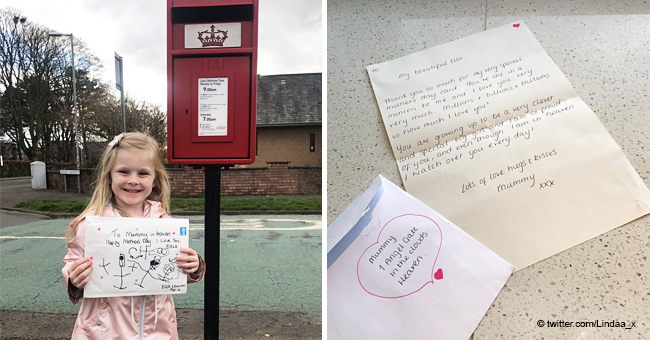 Last Collection Time
Monday to Friday
9.00am
Saturday
7.00am
To Mummy in Heaven
Happy Mothers Day I Love You
Ella
Age 6
To
My beautiful Ella
Thank you so much for my very special
mothers day card. You're one in a
million to me and I love you very
very much. Millions + billions + trillions
is how much I love you!
You are growing up to be a very clever
and special girl and I am so proud
of you, and even though I am in heaven
I watch over you every day!
Lots of love hugs + kisses
Mummy xxx
Mummy
1 Angel Gate
in the clouds
Heaven
© twitter.com/Lindaa_x